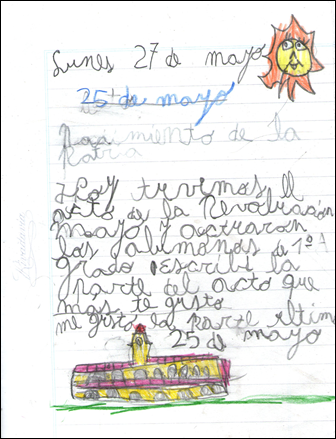 Lunes 27 de mayo
25 de mayo
Nacimiento de la
Patria
Hoy tuvimos el
acto de la Revolución
mayo y actuaron
los alumnos de 1º A
grado escribí la
parte del acto que
más te gustó
me gustó la parte última
25 de mayo